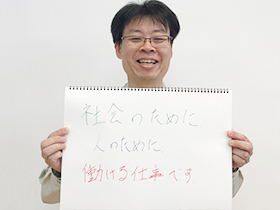 社会のために
人のために
働ける仕事です